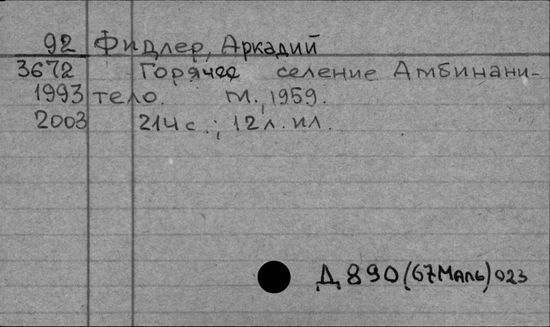 92 Фидлер, Аркадий
3672 Горячее селение Амбинани-
1993 тело. М., 1959.
2003 214 с.; 12 л. ил.
Д 890(67Маль)023